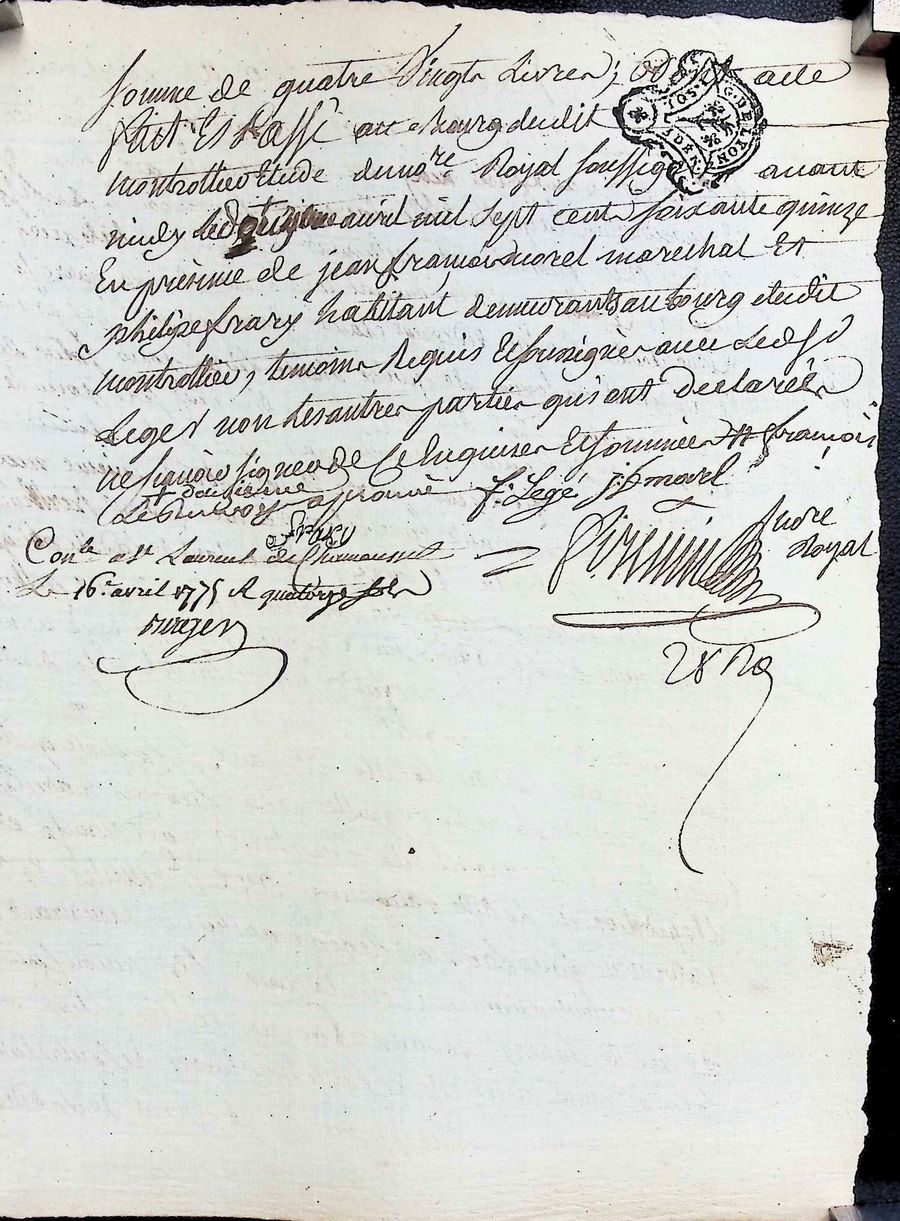 somme de quatre Vingts Livres; Dont acte
fait Et Passé au Bourg dudit
montrottier Etude du no.re Royal soussigné avant
midy le douzieme avril mil sept cent soixante quinze
En présence de jean françois morel marechal Et
philipe frary habitant demeurants au bourg dudit
montrottier, temoins Requis Et soussignés avec Led.
Leger non les autres parties qui ont declarées
ne sçavoir signer de ce Enquises Et sommées françois
+ douzieme
approuvé f. Legé j. f. morel
frary
Con.le a st Laurent de Chamousset
Le 16.e avril 1775 R quatorze sols
notre
Royal
G. DE LYON